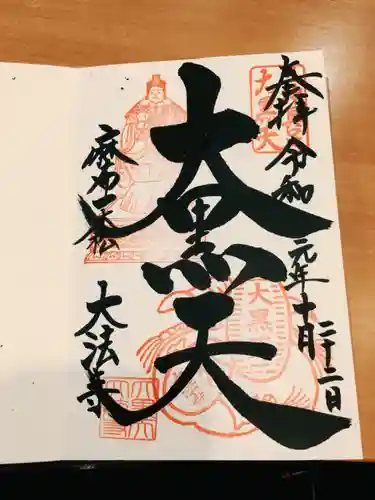 奉拝
令和元年十月二十二日
大黒天
麻布一本松
大法寺
大黒